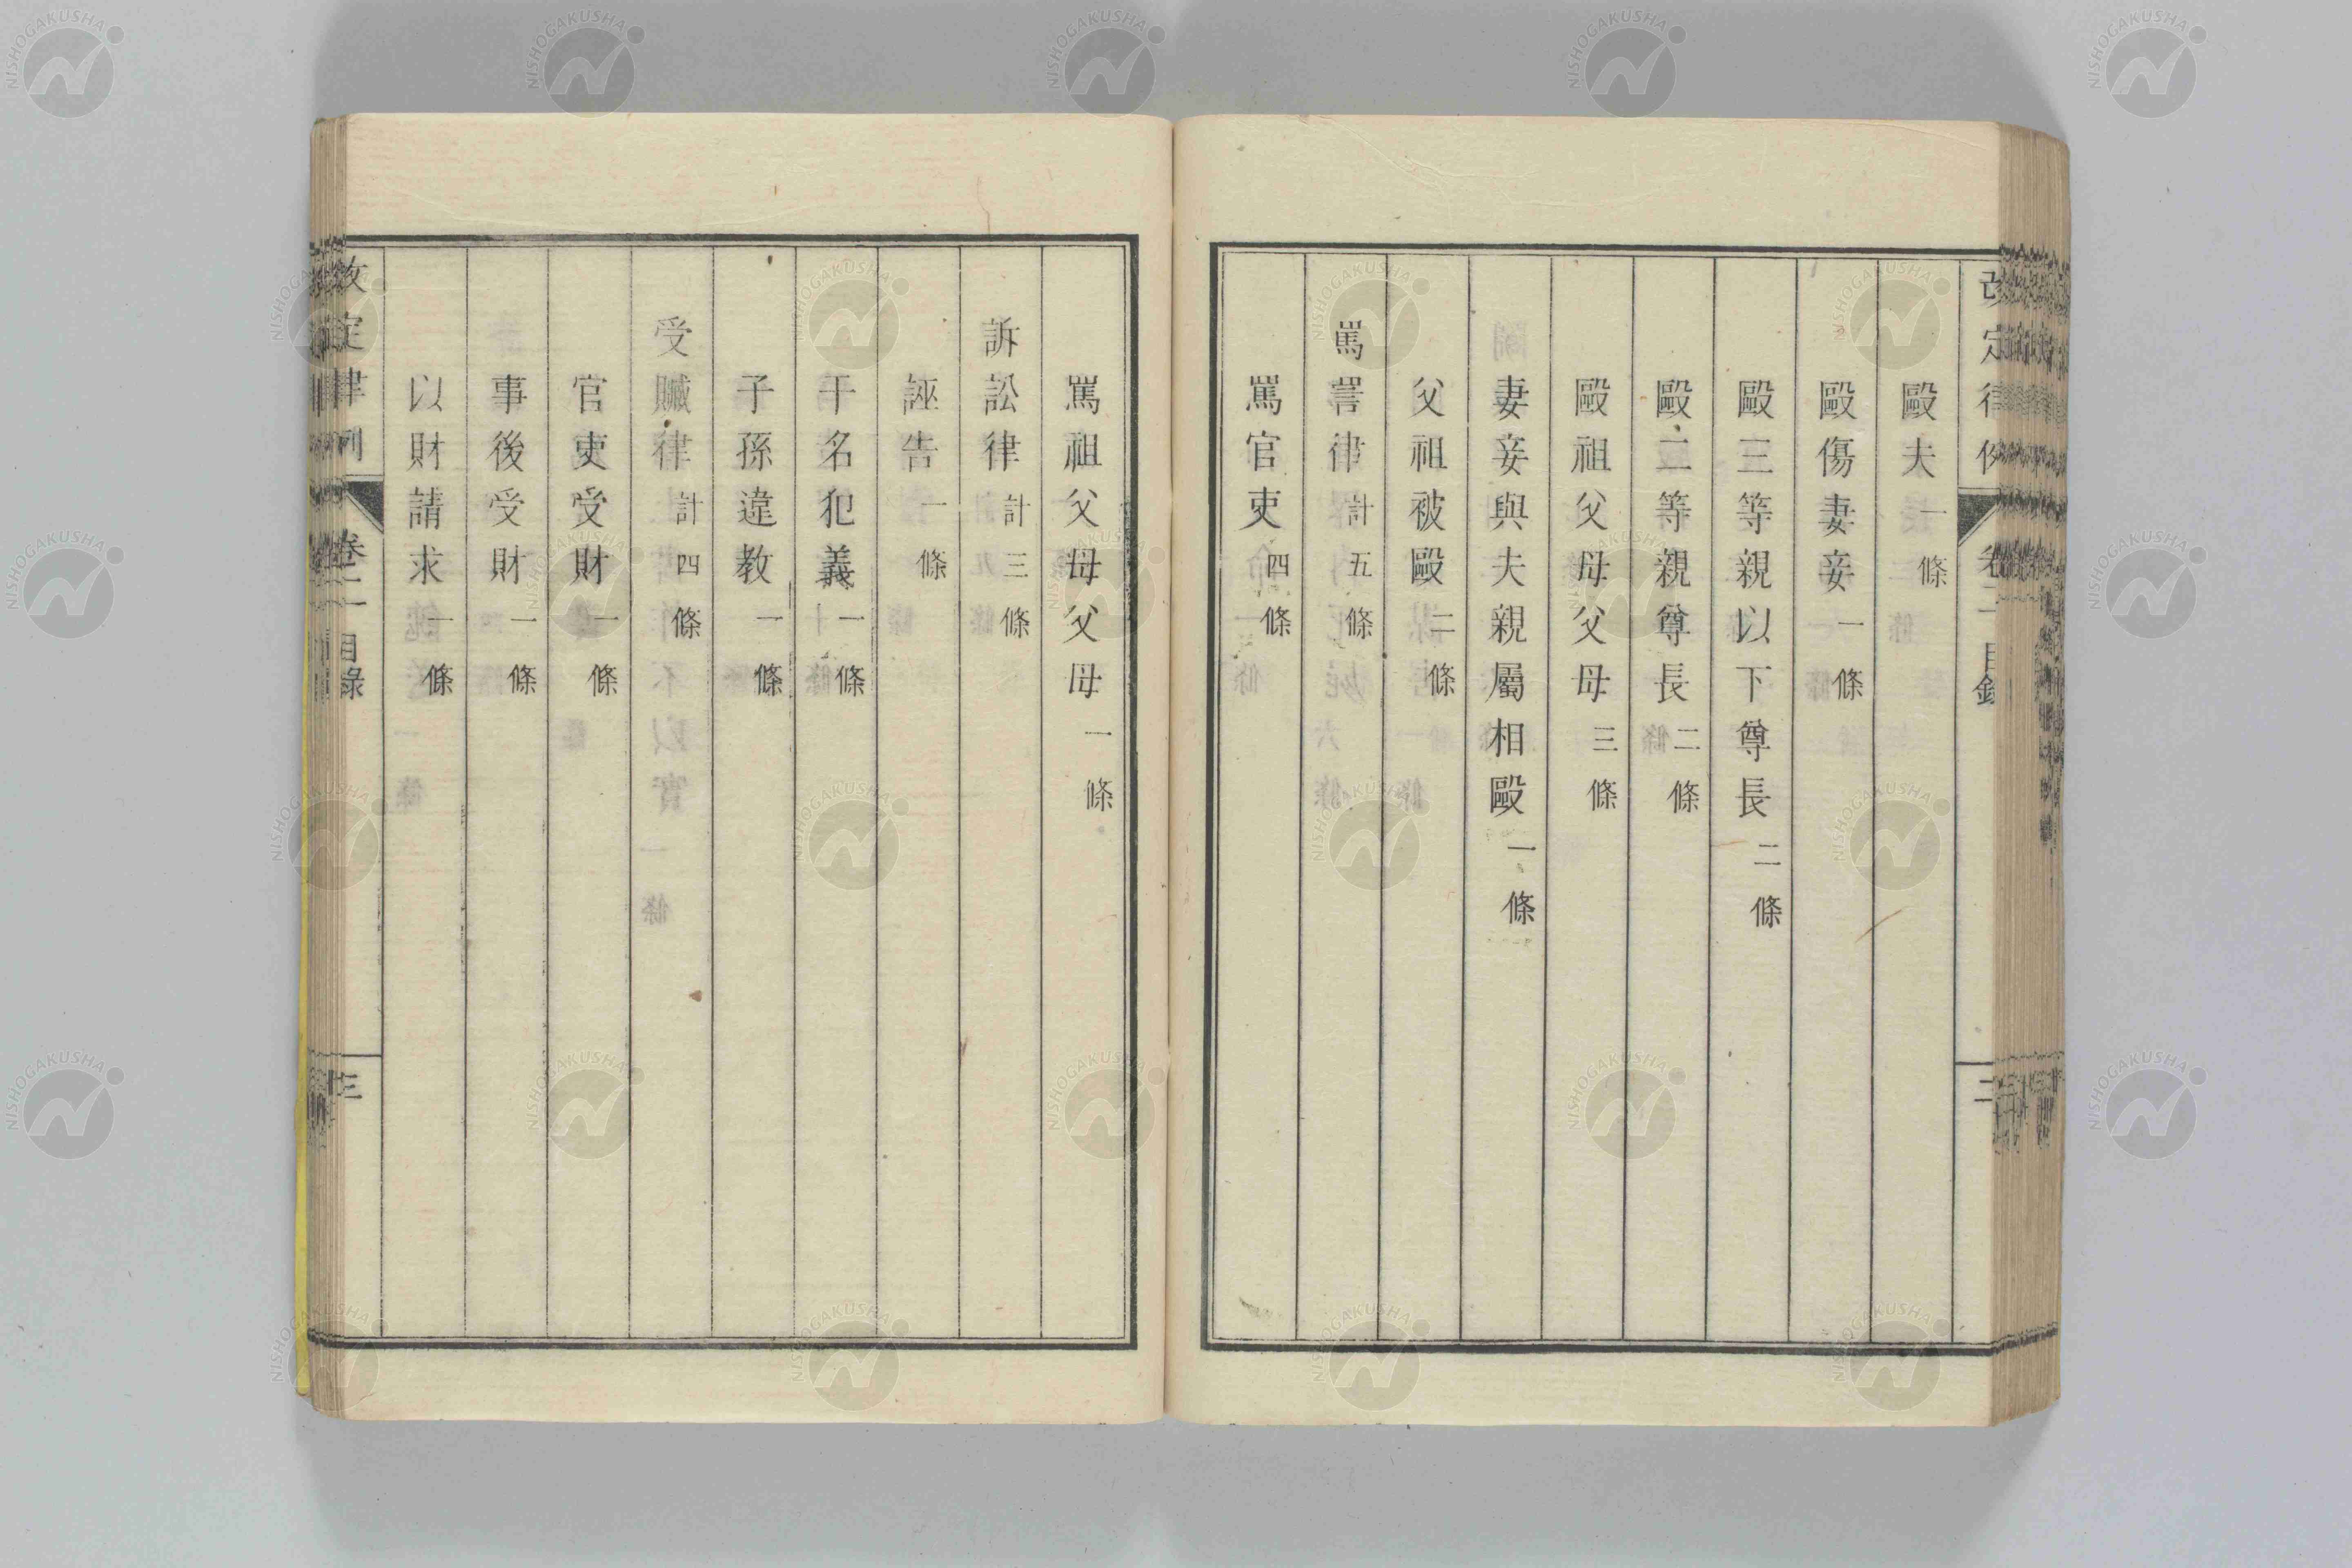 改定律例 卷二 目錄 三
毆夫一條
毆傷妻妾一條
毆三等親以下尊長二條
毆二等親尊長二條
毆祖父母父母三條
妻妾與夫親屬相毆一條
父祖被毆二條
罵詈律計五條
罵官吏四條
罵祖父母父母一條
訴訟律計三條
誣告一條
干名犯義一條
子孫違教一條
受贓律計四條
官吏受財一條
事後受財一條
以財請求一條
改定律例 卷二 目錄 三
NISHOGAKUSHA